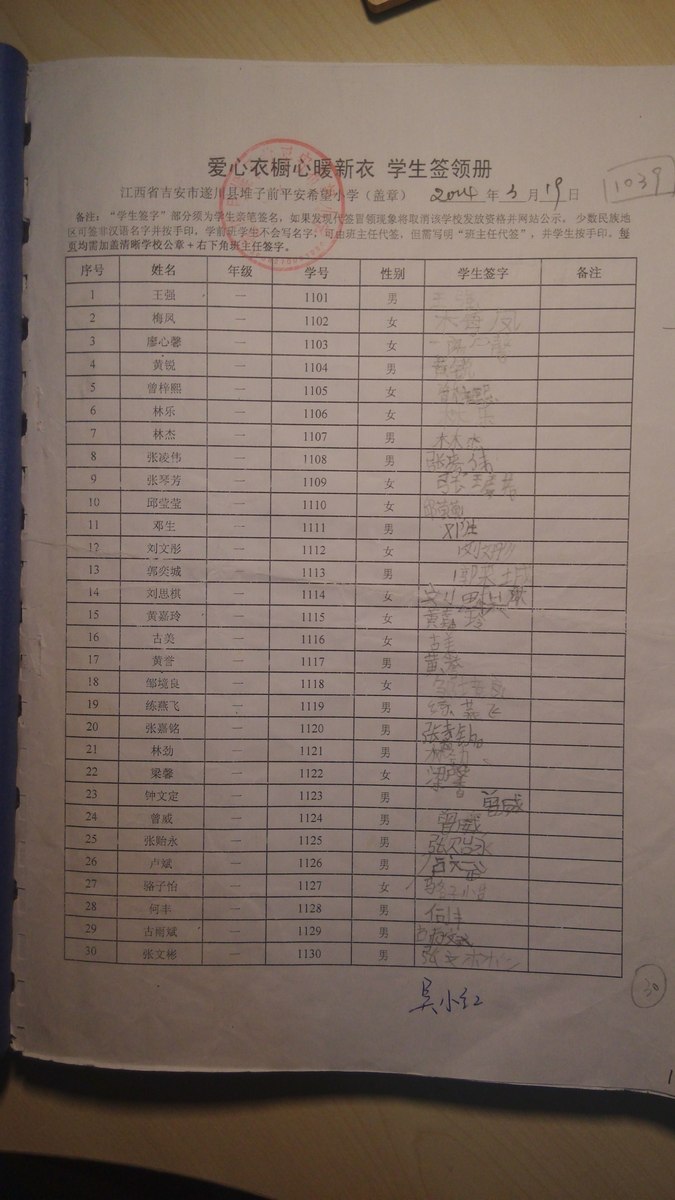 爱心衣橱心暖新衣 学生签领册
江西省吉安市遂川县堆子前平安希望小学（盖章） 2014 年 3 月 19 日
1039
备注：“学生签字”部分须为学生亲笔签名，如果发现代签冒领现象将取消该学校发放资格并网站公示。少数民族地
区可签非汉语名字并按手印，学前班学生不会写名字，可由班主任代签，但需写明“班主任代签”，并学生按手印。每
页均需加盖清晰学校公章+右下角班主任签字。
序号 姓名 年级 学号 性别 学生签字 备注
1 王强 一 1101 男 王强
2 梅凤 一 1102 女
3 廖心馨 一 1103 女
4 黄锐 一 1104 男 黄锐
5 曾梓熙 一 1105 女 曾梓熙
6 林乐 一 1106 女 林乐
7 林杰 一 1107 男 林杰
8 张凌伟 一 1108 男 张凌伟
9 张琴芳 一 1109 女
10 邱莹莹 一 1110 女 邱莹莹
11 邓生 一 1111 男 邓生
12 刘文彤 一 1112 女 刘文彤
13 郭奕城 一 1113 男 郭奕城
14 刘思棋 一 1114 女
15 黄嘉玲 一 1115 女 黄嘉玲
16 古美 一 1116 女 古美
17 黄誉 一 1117 男 黄誉
18 邹境良 一 1118 女
19 练燕飞 一 1119 男 练燕飞
20 张嘉铭 一 1120 男 张嘉铭
21 林劲 一 1121 男 林劲
22 梁馨 一 1122 女 梁馨
23 钟文定 一 1123 男 曾威
24 曾威 一 1124 男 曾威
25 张贻永 一 1125 男 张贻永
26 卢斌 一 1126 男 卢斌
27 骆子怡 一 1127 女
28 何丰 一 1128 男 何丰
29 古雨斌 一 1129 男 古雨斌
30 张文彬 一 1130 男 张文彬
吴小红
30